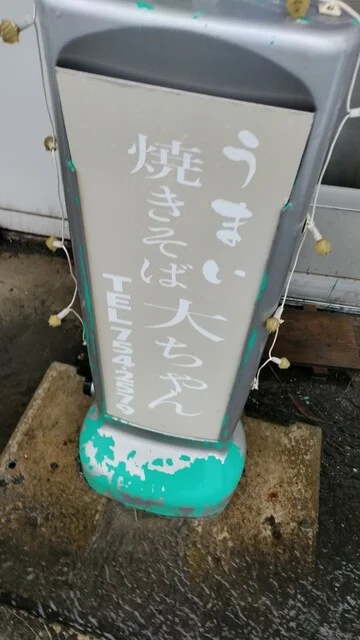 うまい
焼きそば大ちゃん
TEL754-2570